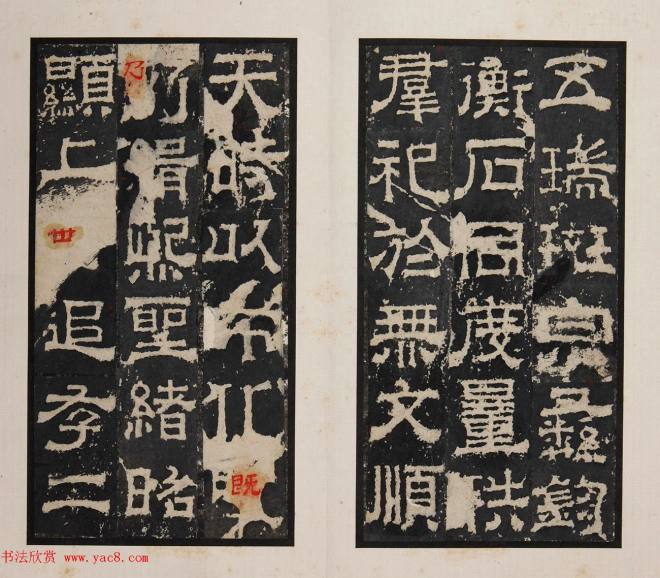 五瑞斑宗彝鈞
衡石同度量秩
羣祀於無文順
天時以布化既
乃緝熙聖緒昭
顯上世追孝二
书法欣赏 www.yac8.com